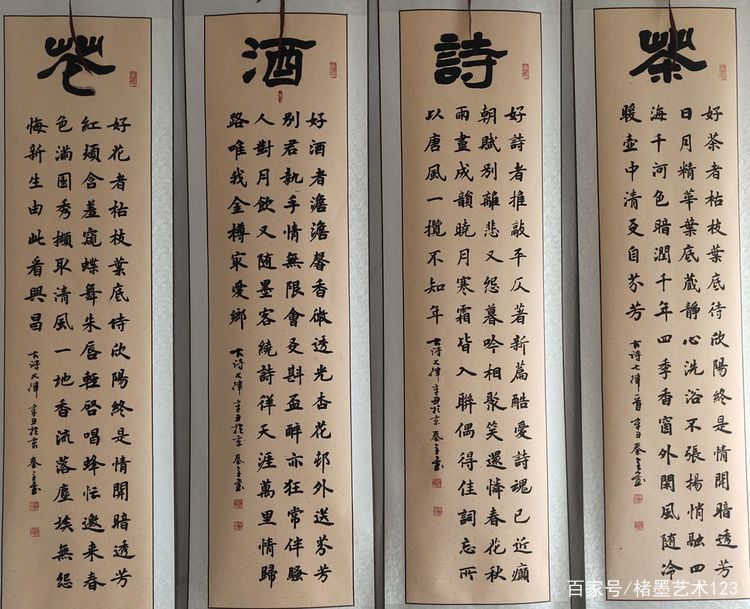 茶
好茶者枯枝葉底待欣陽終是情開暗透芳
日月精華葉底蔵靜心洗浴不張揚悄融四
海千河色暗潤千年四季香窗外閑風随冷
暖壺中清友自芬芳
古詩七律一首辛丑
詩
好詩者推敲平仄著新篇酷愛詩魂已近癲
朝賦别離悲又怨暮吟相聚笑還憐春花秋
雨盡成韻曉月寒霜皆入聯偶得佳詞忘所
以唐風一攬不知年
古詩七律辛丑於京
酒
好酒者澹澹馨香傲透光杏花邨外送芬芳
别君執手情無限會友斟盃醉亦狂常伴騷
人對月飲又随墨客繞詩徉天涯萬里情歸
路唯我金樽冣愛鄉
古詩七律辛丑於京
花
好花者枯枝葉底待欣陽終是情開暗透芳
紅頰含羞窺蝶舞朱唇輕啓唱蜂忙邀来春
色滿園秀擷取清風一地香流落塵埃無怨
悔新生由此看興昌
古詩七律辛丑於京
百家号/楮墨艺术123